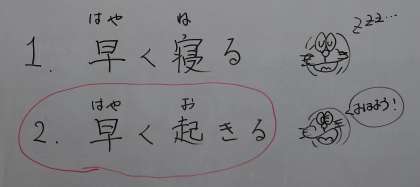 はや ね
1. 早く寝る
zzz...
はや お
2. 早く起きる
おはよう!